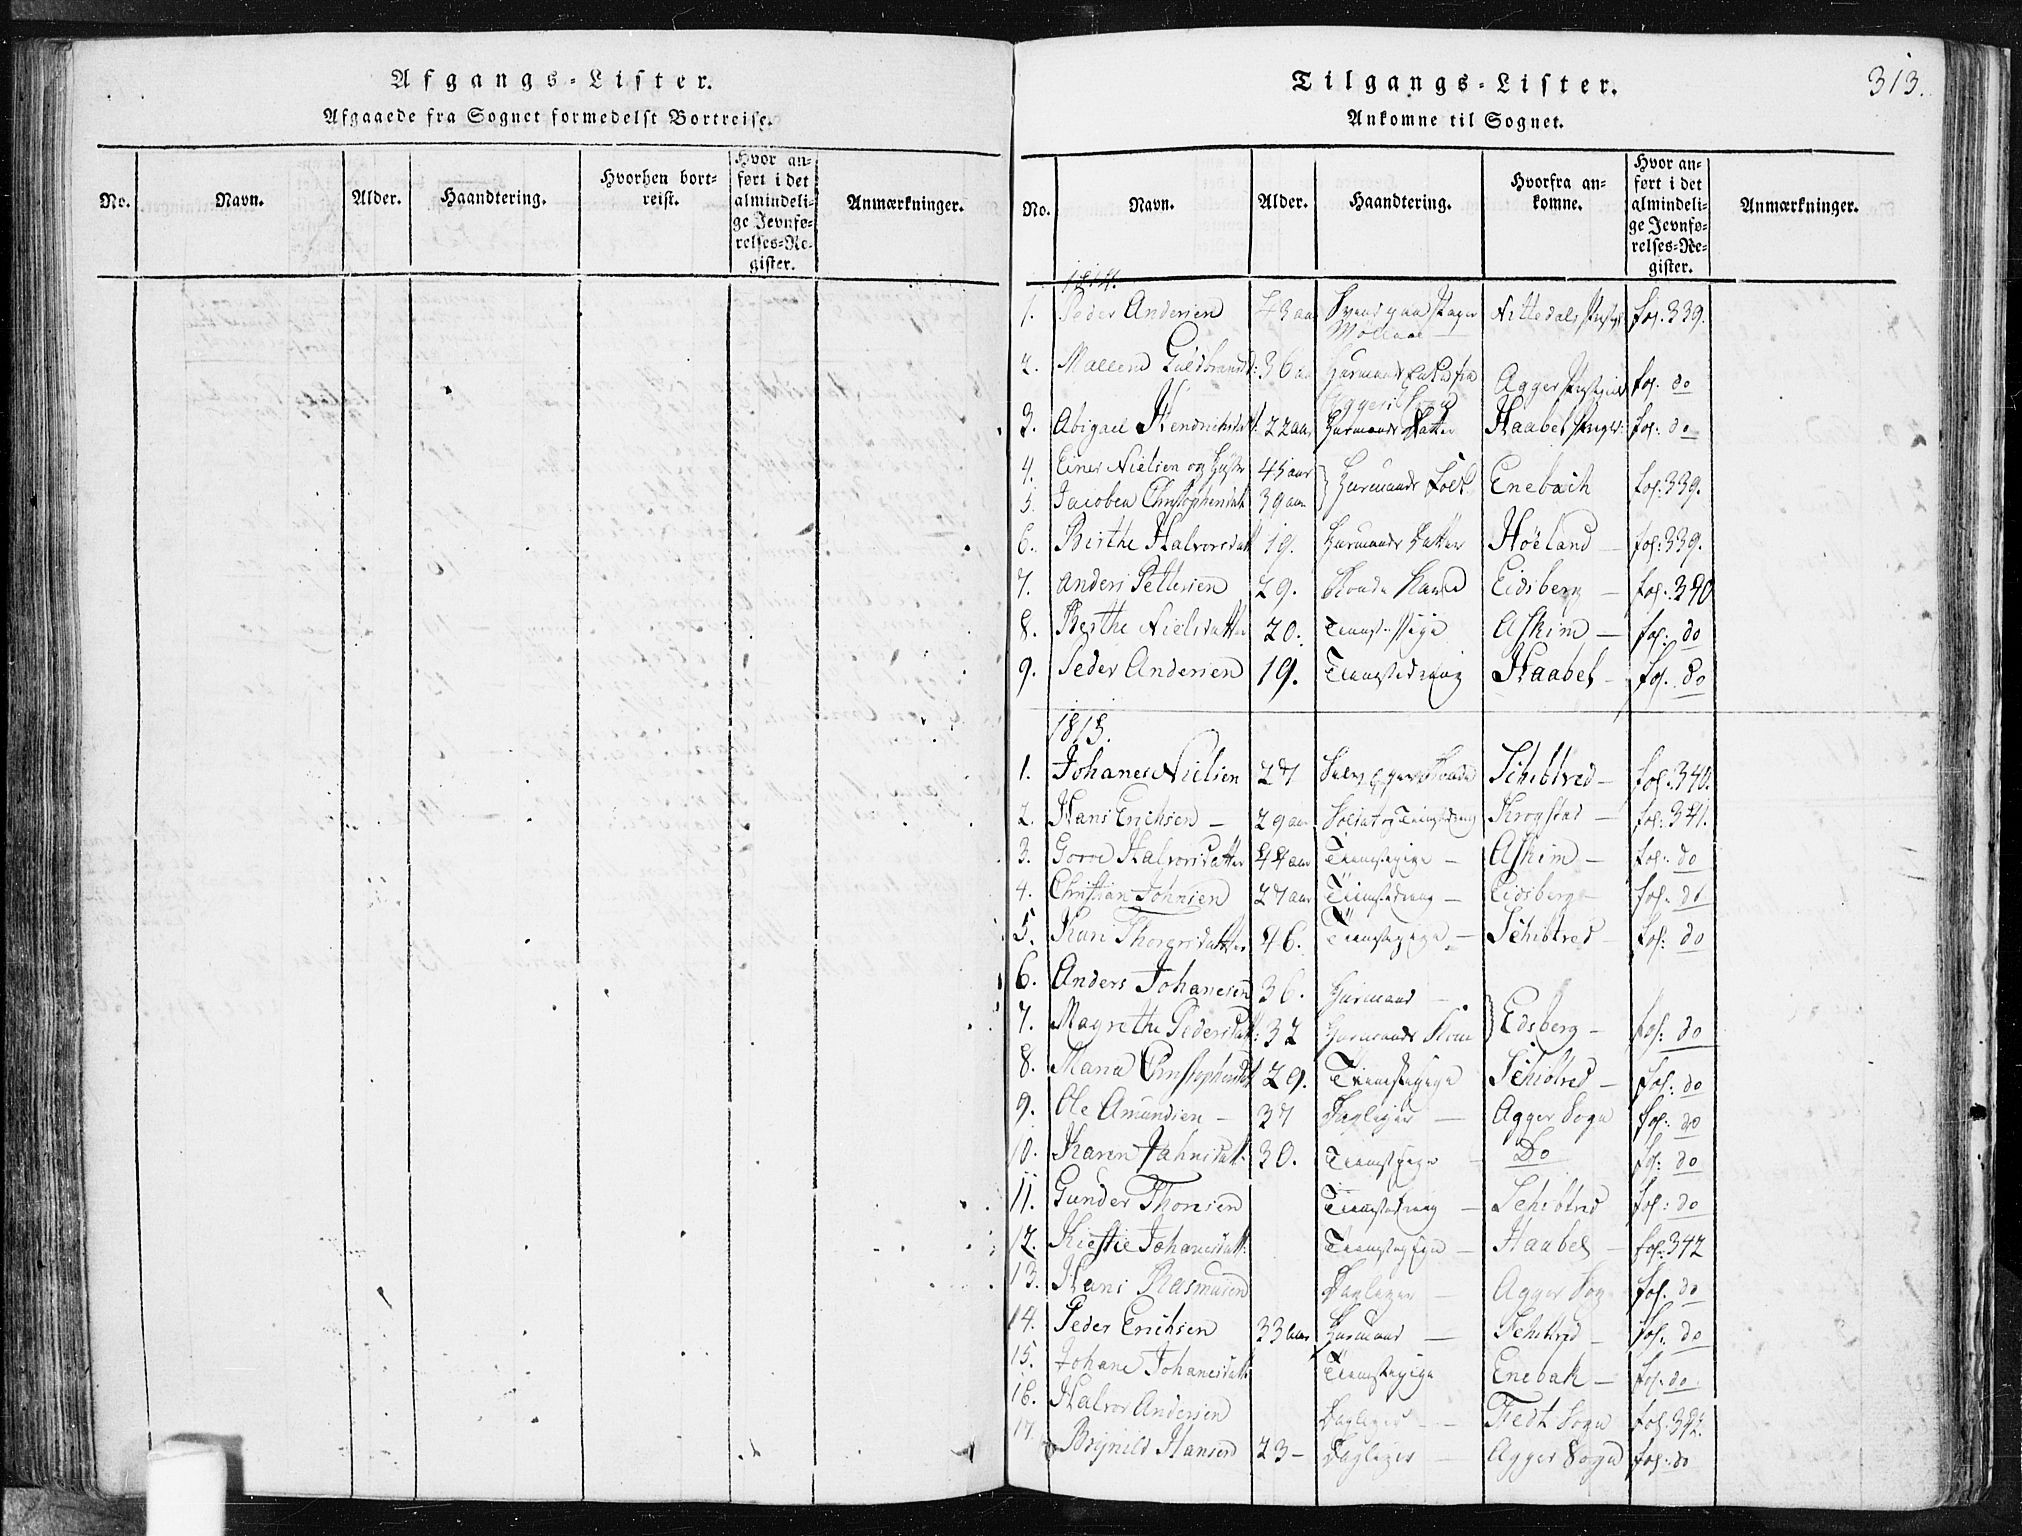 Afgangs-Lister.
Afgaaede fra Sognet formedelst Bortreise.
No. Navn. Alder. Haandtering. Hvorhen bortreist. Hvor anført i det almindelige Jevnførelses-Register. Anmærkninger.
313.
Tilgangs-Lister.
Ankomne til Sognet.
No. Navn. Alder. Haandtering. Hvorfra ankomne. Hvor anført i det almindelige Jevnførelses-Register. Anmærkninger.
1814.
1. Peder Andersen 43 aar Nittedals fol. 339.
2. Mallene Guldbrandsd: 36 aar Agger fol. do
3. Abigael Hendrichsdat 22 aar Huusmands Datter Haabøl fol: do
4. Einer Nielsen og Hustr 45 aar Huusmands Folk Enebach fol. 339.
5. Jacobea Christophersdat 39 aar
6. Birthe Halvorsdatt 19. Huusmands Datter Høeland fol: 339.
7. Anders Pettersen 29. Eidsberg fol: 340
8. Berthe Nielsdatter 20. Tienestepige Askim fol: do
9. Peder Andersen 19. Tienestedreng Haabøl fol. do
1815.
1. Johanes Nielsen 27 Schibtved fol: 340.
2. Hans Erichsen 29 aar Soldat og Tienestdreng Krogstad fol: 341.
3. Goroe Halvorsdatter 44 aar Tienestepige Askim fol: do
4. Christian Johnsen 27 aar Tienestedreng Eidsberg fol. do
5. Kari Thorgersdatter 46. Tienestepige Schibtved fol: do
6. Anders Johanesen 36. Huusmand
7. Magrethe Pedersdatt: 32 Huusmands Kone Edsberg fol. do
8. Maria Christophersdat 29. Tienestepige Schibtved fol: do
9. Ole Amundsen 37 Dagleier Agger Sogn fol: do
10. Karen Jahnsdatt. 30. Tienestpige Do fol: do
11. Gunder Thoresen Tienestedreng Schibtved fol: do
12. Kiestie Johanesdatt: Tienestepige Haabøl fol: 342
13. Hans Rasmusen Dagleier Agger Sogn fol. do
14. Peder Erichsen 33 aar Huusmand Schibtved fol: do
15. Johane Johanesdatt Tienestepige Enebak fol. do
16. Halvor Andersen Dagleier Tredt Sogn fol: 342.
17. Brynild Hansen 23 Dagleier Agger Sogn fol: do